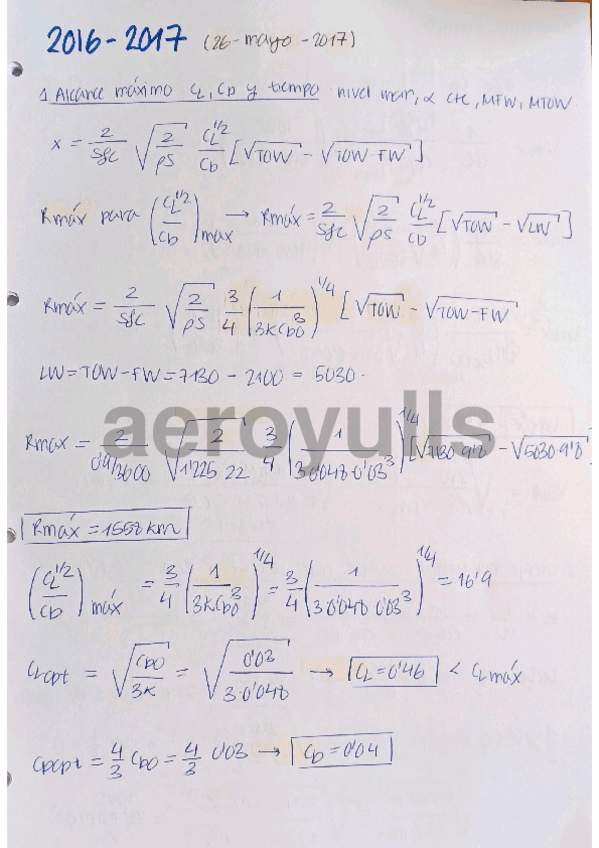 2016-2017 (26-mayo-2017)
1. Alcance máximo CL, CD y tiempo nivel mar, α cte, MFW, MTOW
x = 2/sfc √(2/ρS) CL^1/2/CD [√TOW - √TOW-FW]
Rmáx para (CL^1/2/CD)max → Rmáx = 2/sfc √(2/ρS) CL^1/2/CD [√TOW - √LW]
Rmáx = 2/sfc √(2/ρS) 3/4 (1/3KCD0^3)^1/4 [√TOW - √TOW-FW
LW = TOW-FW = 7130 - 2100 = 5030.
aeroyulls
Rmax = 2/0'9/3600 √(2/1'225·22) 3/4 (1/3·0'048·0'03^3)^1/4 [√7130·9'8 - √5030·9'8]
Rmáx = 1558 km
(CL^1/2/CD)máx = 3/4 (1/3KCD0^3)^1/4 = 3/4 (1/3·0'048·0'03^3)^1/4 = 16'9
CLopt = √(CD0/3K) = √(0'03/3·0'048) → CL = 0'46 < CLmáx
CDopt = 4/3 CD0 = 4/3 0'03 → CD = 0'04